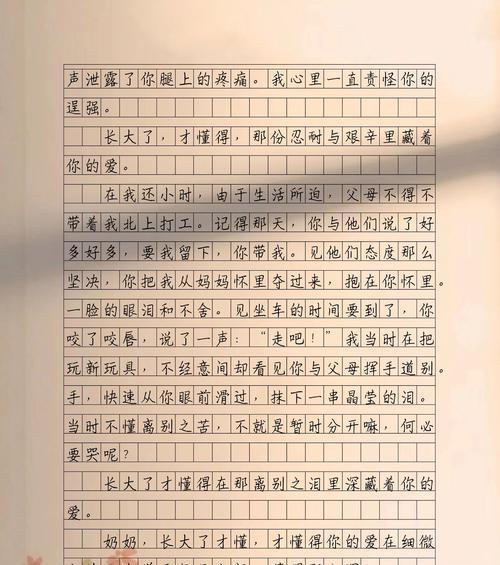 声泄露了你腿上的疼痛。我心里一直责怪你的
逞强。
长大了，才懂得，那份忍耐与艰辛里藏着
你的爱。
在我还小时，由于生活所迫，父母不得不
带着我北上打工。记得那天，你与他们说了好
多好多，要我留下，你带我。见他们态度那么
坚决，你把我从妈妈怀里夺过来，抱在你怀里。
一脸的眼泪和不舍。见坐车的时间要到了，你
咬了咬唇，说了一声：“走吧！”我当时在把
玩新玩具，不经意间却看见你与父母挥手道别。
手，快速从你眼前滑过，抹下一串晶莹的泪。
当时不懂离别之苦，不就是暂时分开嘛，何必
要哭呢？
长大了才懂得在那离别之泪里深藏着你的
爱。
奶奶，长大了才懂，才懂得你的爱在细微